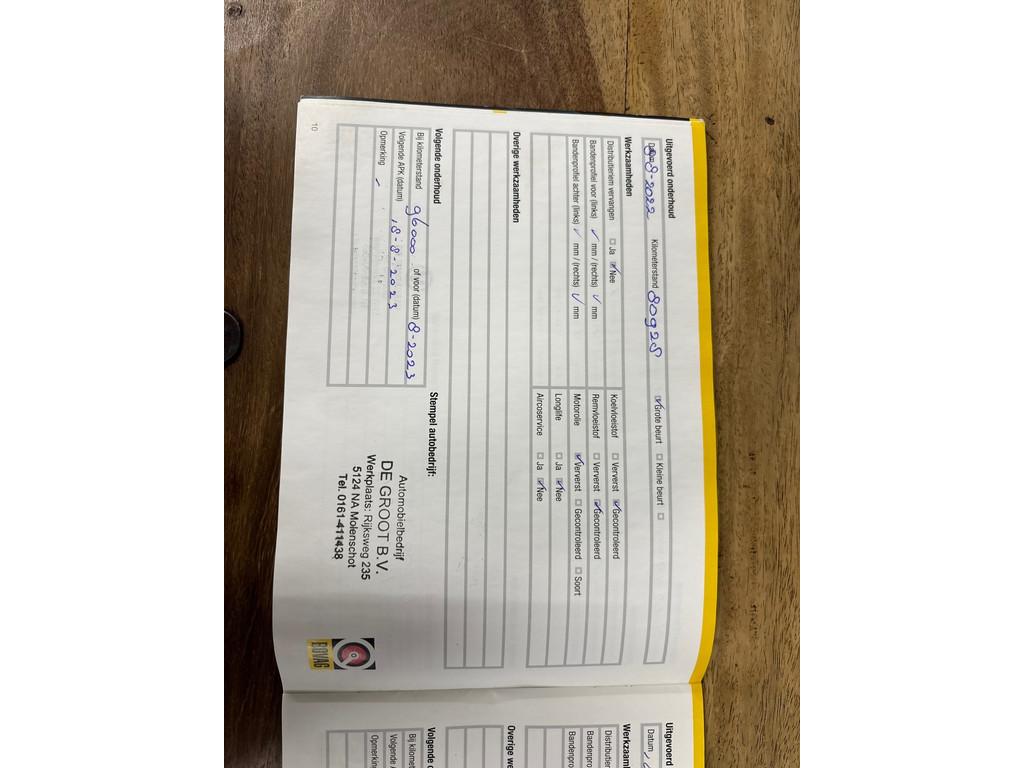 Uitgevoerd onderhoud
Datum 8-8-2022 Kilometerstand 80928 Grote beurt Kleine beurt
Werkzaamheden
Distributieriem vervangen Ja Nee Koelvloeistof Ververst Gecontroleerd
Bandenprofiel voor (links) mm / (rechts) mm Remvloeistof Ververst Gecontroleerd
Bandenprofiel achter (links) mm / (rechts) mm Motorolie Ververst Gecontroleerd Soort
Longlife Ja Nee
Aircoservice Ja Nee
Overige werkzaamheden
Volgende onderhoud
Bij kilometerstand 96000 of voor (datum) 8-2023
Volgende APK (datum) 18-8-2023
Opmerking
Stempel autobedrijf:
Automobielbedrijf
DE GROOT B.V.
Werkplaats: Rijksweg 235
5124 NA Molenschot
Tel. 0161-411438
BOVAG
10
Uitgevoerd
Datum
Werkzaaml
Distributierie
Bandenpro
Bandenpro
Overige we
Volgende o
Bij kilomet
Volgende A
Opmerking